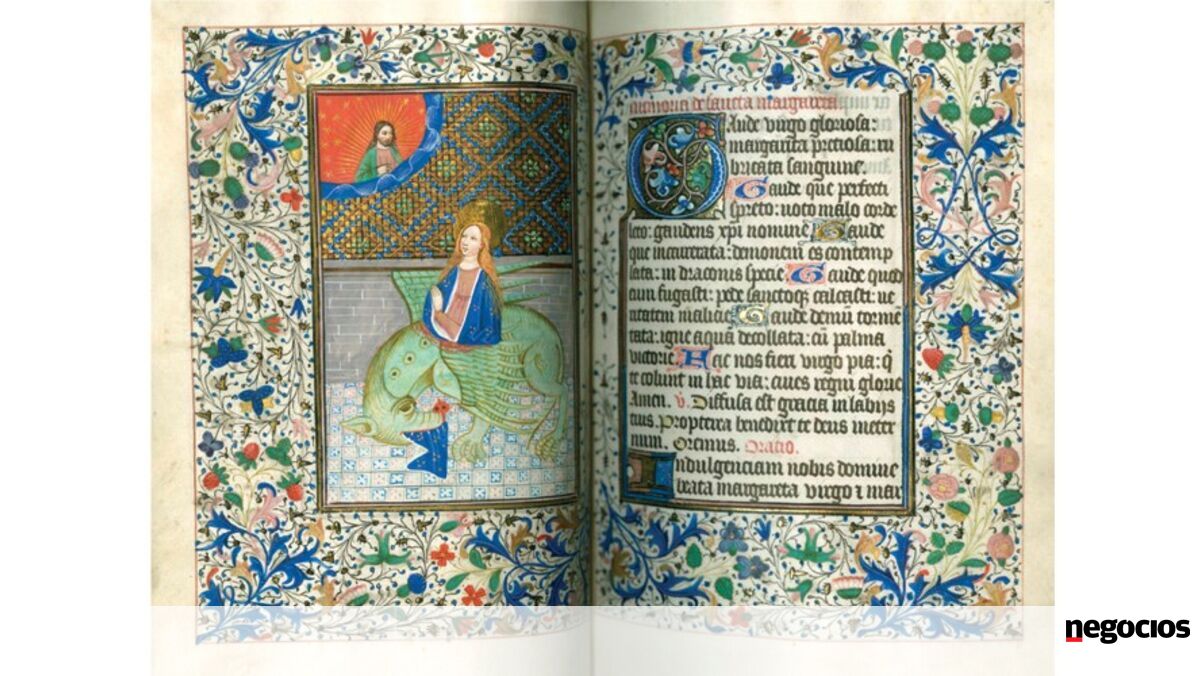 memoria de sancta margareta
Gaude virgo gloriosa:
margarita preciosa: ru
bricata sanguine.
Gaude que perfecti
spreto: noto malo corde
leto: gaudens xpi nomine Gaude
que incarcerata: demonem es contemp
lata: in draconis specie Gaude quod
eum fugasti: pede sanctoq; calcasti: ue
nitatem malicie Gaude demū torme
tata: igne aqua decollata: cū palma
victorie. Hac nos fieri virgo pia: q̄
te colunt in hac via: ciues regni glorie
Amen. v̄. Diffusa est gracia in labijs
tuis. Propterea benedixit te deus in eter
num. Oremus. Oratio.
Indulgenciam nobis domine
beata margareta virgo ⁊ mar
negocios